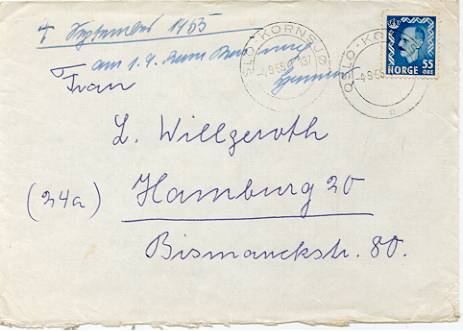 4 September 1955
am 1.9. zum
Frau
L. Willgeroth
(24a) Hamburg 20
Bismarckstr. 80.
OSLO-KORNSJØ
-4.9.55
OSLO-KO
-4.9.55
55
NORGE ØRE